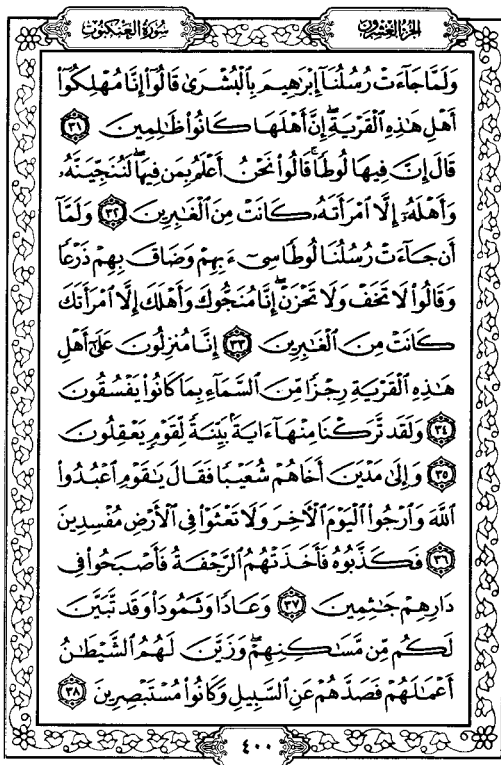 سُورَةُ الْعَنكَبُوتِ
الجُزْءُ العِشْرُونَ
وَلَمَّا جَآءَتْ رُسُلُنَآ إِبْرَٰهِيمَ بِٱلْبُشْرَىٰ قَالُوٓا۟ إِنَّا مُهْلِكُوٓا۟
أَهْلِ هَٰذِهِ ٱلْقَرْيَةِ ۖ إِنَّ أَهْلَهَا كَانُوا۟ ظَٰلِمِينَ ٣١
قَالَ إِنَّ فِيهَا لُوطًا ۚ قَالُوا۟ نَحْنُ أَعْلَمُ بِمَن فِيهَا ۖ لَنُنَجِّيَنَّهُۥ
وَأَهْلَهُۥٓ إِلَّا ٱمْرَأَتَهُۥ كَانَتْ مِنَ ٱلْغَٰبِرِينَ ٣٢ وَلَمَّآ
أَن جَآءَتْ رُسُلُنَا لُوطًا سِىٓءَ بِهِمْ وَضَاقَ بِهِمْ ذَرْعًا
وَقَالُوا۟ لَا تَخَفْ وَلَا تَحْزَنْ ۖ إِنَّا مُنَجُّوكَ وَأَهْلَكَ إِلَّا ٱمْرَأَتَكَ
كَانَتْ مِنَ ٱلْغَٰبِرِينَ ٣٣ إِنَّا مُنزِلُونَ عَلَىٰٓ أَهْلِ
هَٰذِهِ ٱلْقَرْيَةِ رِجْزًا مِّنَ ٱلسَّمَآءِ بِمَا كَانُوا۟ يَفْسُقُونَ
٣٤ وَلَقَد تَّرَكْنَا مِنْهَآ ءَايَةًۢ بَيِّنَةً لِّقَوْمٍ يَعْقِلُونَ
٣٥ وَإِلَىٰ مَدْيَنَ أَخَاهُمْ شُعَيْبًا فَقَالَ يَٰقَوْمِ ٱعْبُدُوا۟
ٱللَّهَ وَٱرْجُوا۟ ٱلْيَوْمَ ٱلْءَاخِرَ وَلَا تَعْثَوْا۟ فِى ٱلْأَرْضِ مُفْسِدِينَ
٣٦ فَكَذَّبُوهُ فَأَخَذَتْهُمُ ٱلرَّجْفَةُ فَأَصْبَحُوا۟ فِى
دَارِهِمْ جَٰثِمِينَ ٣٧ وَعَادًا وَثَمُودَا۟ وَقَد تَّبَيَّنَ
لَكُم مِّن مَّسَٰكِنِهِمْ ۖ وَزَيَّنَ لَهُمُ ٱلشَّيْطَٰنُ
أَعْمَٰلَهُمْ فَصَدَّهُمْ عَنِ ٱلسَّبِيلِ وَكَانُوا۟ مُسْتَبْصِرِينَ ٣٨
٤٠٠